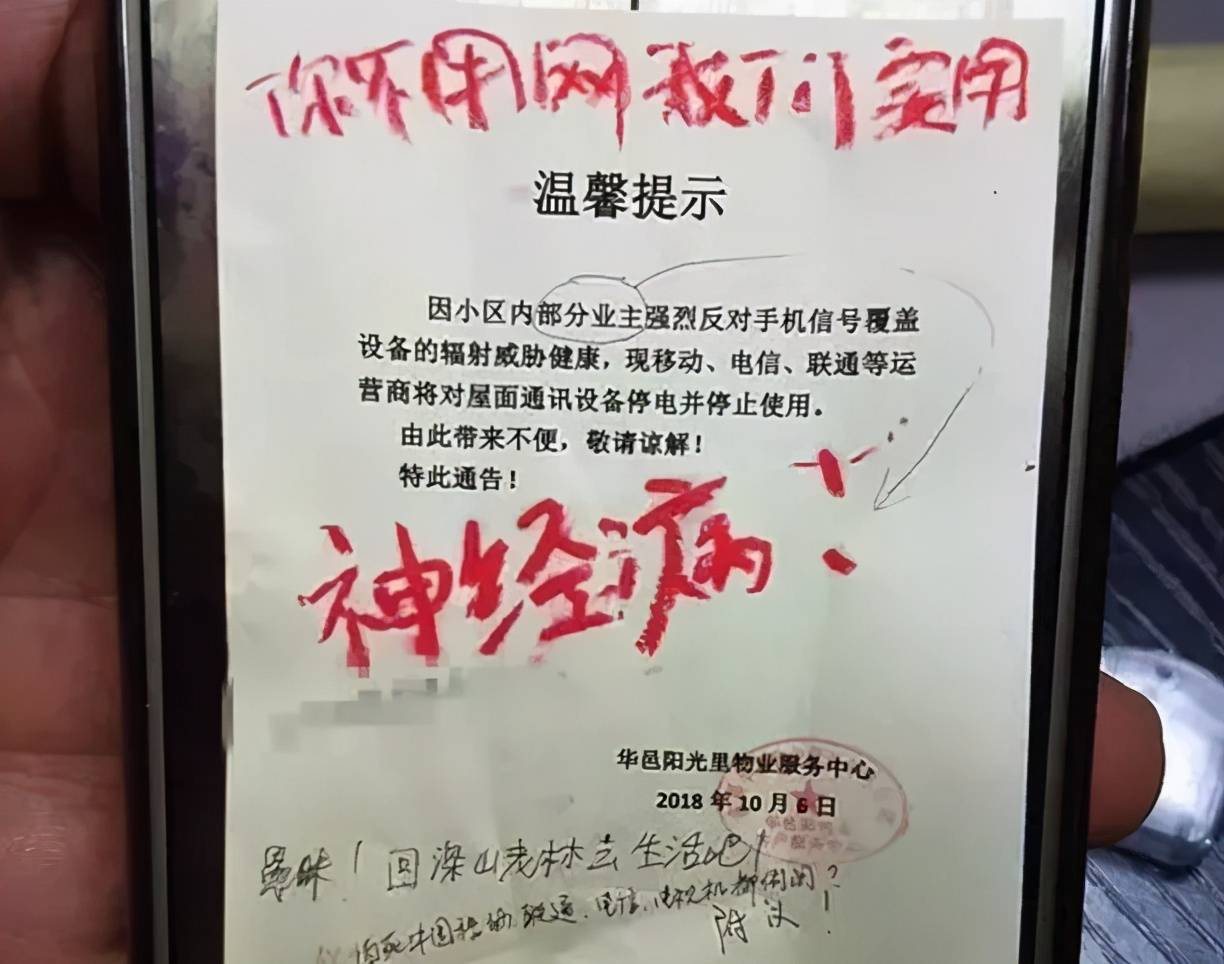 你不用网我们实用
温馨提示
因小区内部分业主强烈反对手机信号覆盖
设备的辐射威胁健康，现移动、电信、联通等运
营商将对屋面通讯设备停电并停止使用。
由此带来不便，敬请谅解！
特此通告！
神经病！
华邑阳光里物业服务中心
2018 年 10 月 6 日
愚昧！回深山老林去生活吧！
中国移动、联通、电信、电视机都
附议！